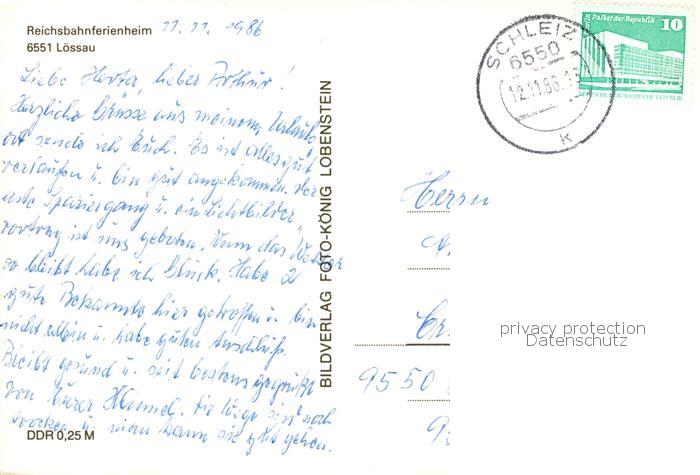 Reichsbahnferienheim
6551 Lössau
11.11.1986
Liebe Herta, lieber Arthur!
Herzliche Grüsse aus meinem Urlaubs
ort sende ich Euch. Es ist alles gut
verlaufen u. bin gut angekommen. Der
erste Spaziergang u. ein Lichtbilder
vortrag ist uns geboten. Wenn das Wetter
so bleibt habe ich Glück. Habe 2
gute Bekannte hier getroffen u. bin
nicht allein u. habe guten Anschluß.
Bleibt gesund u. seit bestens gegrüßt
von Eurer Hannel. Die Wege sind noch
trocken u. man kann sie gut gehen.
DDR 0,25 M
BILDVERLAG FOTO-KÖNIG LOBENSTEIN
SCHLEIZ
6550
12.11.86
K
Berlin Palast der Republik
10
DEUTSCHE DEMOKRATISCHE REPUBLIK
Herrn
9550
privacy protection
Datenschutz